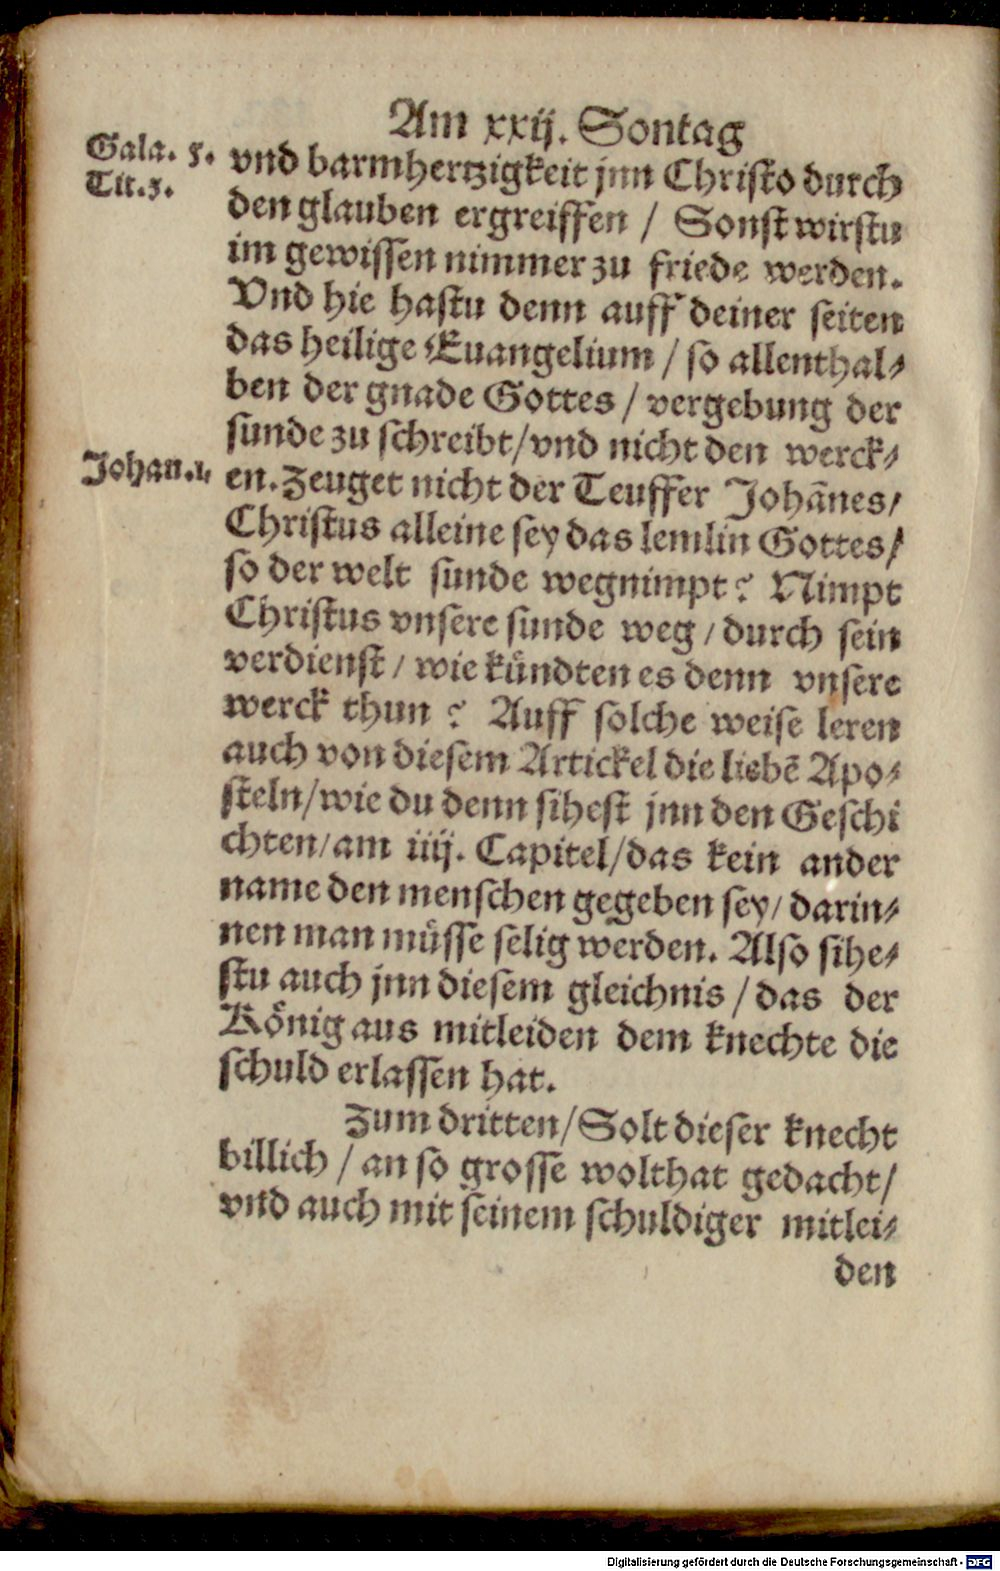 Am xxij. Sontag
Gala. 5.
Tit. 3.
vnd barmhertzigkeit jnn Christo durch
den glauben ergreiffen / Sonst wirstu
im gewissen nimmer zu friede werden.
Vnd hie hastu denn auff deiner seiten
das heilige Euangelium / so allenthal⸗
ben der gnade Gottes / vergebung der
sunde zu schreibt / vnd nicht den werck⸗
Johan. 1.
en. Zeuget nicht der Teuffer Johānes /
Christus alleine sey das lemlin Gottes /
so der welt sunde wegnimpt? Nimpt
Christus vnsere sunde weg / durch sein
verdienst / wie kuͤndten es denn vnsere
werck thun? Auff solche weise leren
auch von diesem Artickel die liebē Apo⸗
steln / wie du denn sihest jnn den Geschi
chten / am iiij. Capitel / das kein ander
name den menschen gegeben sey / darin⸗
nen man muͤsse selig werden. Also sihe⸗
stu auch jnn diesem gleichnis / das der
Koͤnig aus mitleiden dem knechte die
schuld erlassen hat.
Zum dritten / Solt dieser knecht
billich / an so grosse wolthat gedacht /
vnd auch mit seinem schuldiger mitlei⸗
den
Digitalisierung gefördert durch die Deutsche Forschungsgemeinschaft - DFG